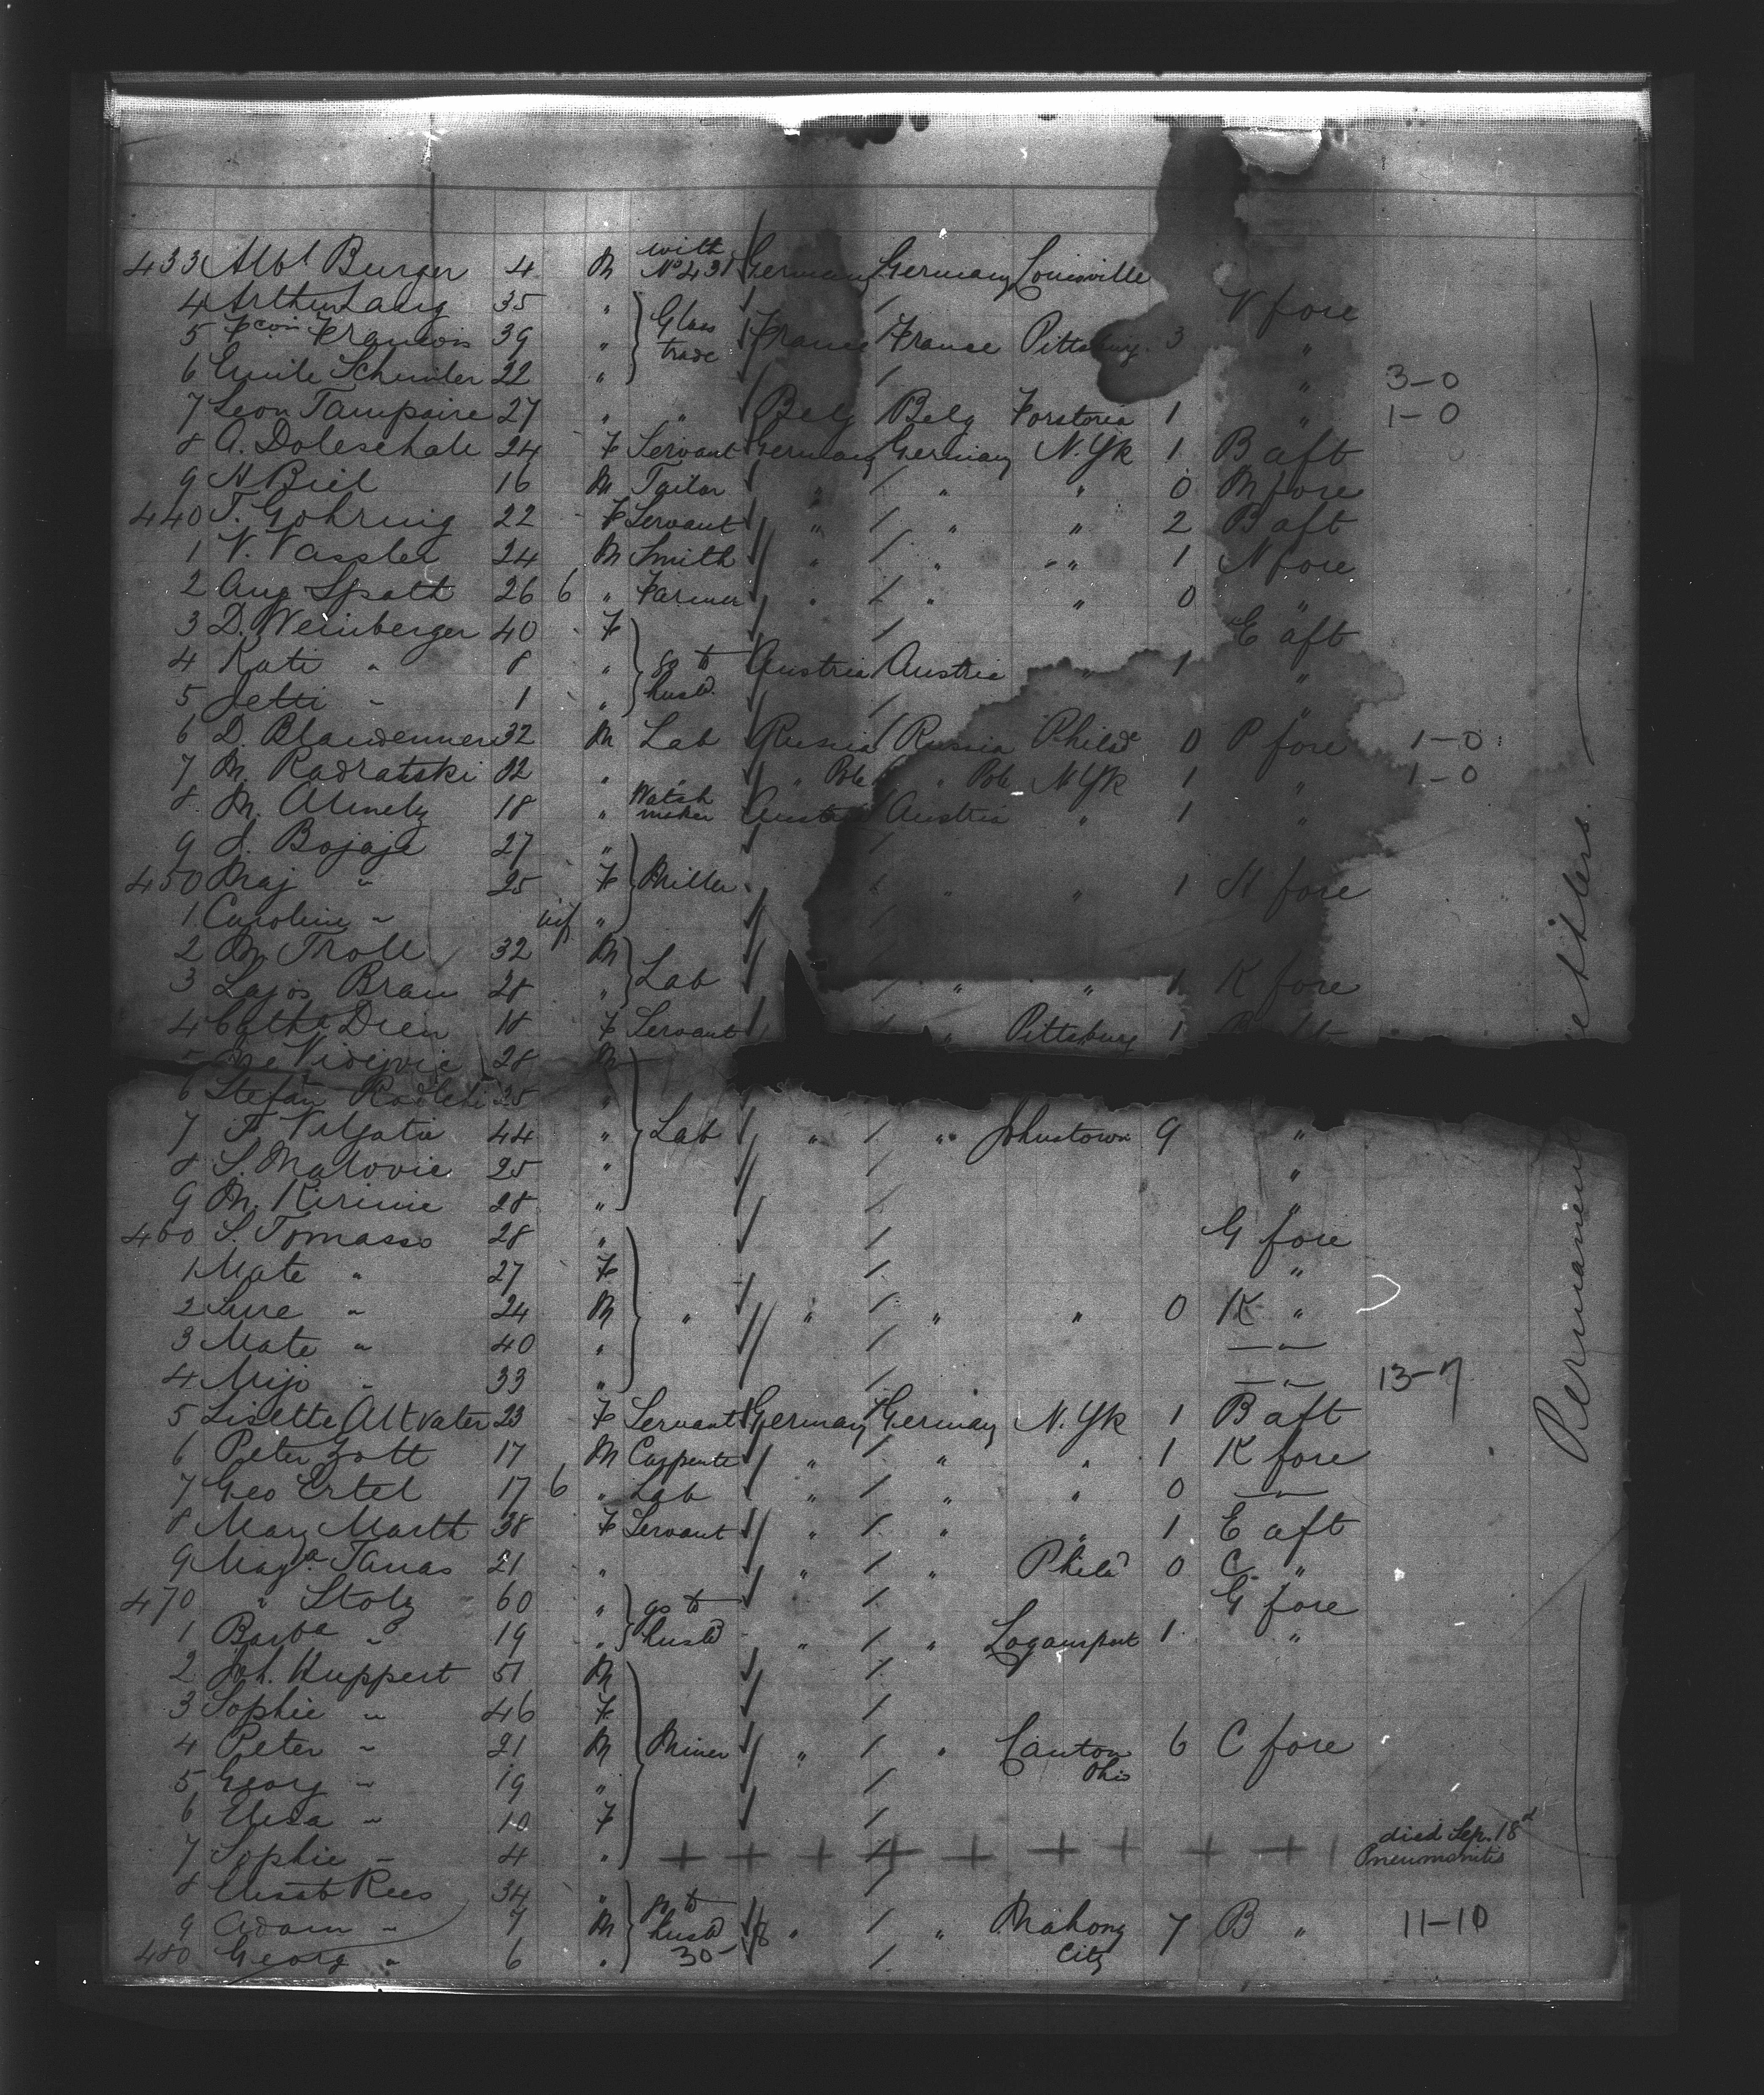 433 Albt Burger 4 M with No 431 Germany Germany Louisville
4 Arthur Lang 35 " N fore
5 Fcois Francois 39 " Glass trade France France Pittsburg 3 "
6 Emile Schmiler 22 " " 3-0
7 Leon Tampaire 27 " " Belg Belg Forstoria 1 " 1-0
8 A. Doleschall 24 F Servant Germany Germany N.Yk 1 B aft
9 H Biel 16 M Tailor " " " 0 M fore
440 T. Gohring 22 F Servant " " " 2 B aft
1 V. Vassler 24 M Smith " " " 1 N fore
2 Aug Spatt 26 6 " Farmer " " " 0 "
3 D. Weinberger 40 F E aft
4 Kati " 8 " go to husbd. Austria Austria " 1 "
5 Jetti " 1 " "
6 D. 32 M Lab Russia Russia Philad 0 P fore 1-0
7 M. Radratski 32 " " " Pole " Pole N Yk 1 " 1-0
8 M. 18 " Watch maker Austria Austria " 1 "
9 J. Bojaje 27 "
450 Maj " 25 F Miller " " 1 H fore
1 Caroline " inf "
2 M. Troll 32 M
3 Lajos Brau 28 " Lab " " 1 K fore
4 Cath Dien 18 F Servant " Pittsburg 1
5 28 M
6 Stefan 35 "
7 44 " Lab " " Johnstown 9 "
8 S. Malovic 25 " "
9 M. Kirinic 28 " "
460 S. Tomasso 28 " G fore
1 Mate " 27 F "
2 Lure " 24 M " " " " 0 K "
3 Mate " 40 " "
4 Mijo " 33 " " 13-7
5 Lisette Altvater 23 F Servant Germany Germany N.Yk 1 B aft
6 Peter Zott 17 M Carpente " " " 1 K fore
7 Geo Ertel 17 6 " Lab " " " 0 "
8 Mary Marth 38 F Servant " " " 1 E aft
9 Magda Tanas 21 " " " Phila 0 C "
470 " Stolz 60 " go to G fore
1 Barba " 19 " husbd " " Logansport 1 "
2 Joh. Huppert 51 M
3 Sophie " 46 F
4 Peter " 21 M Miner " " Canton Ohio 6 C fore
5 Georg " 19 "
6 Elisa " 10 F
7 Sophie " 4 " + + + + + + + + + died Sep. 18d Pneumonitis
8 Elisab Rees 34 "
9 Adam " 7 M go to husbd 30- " " Mahony City 7 B " 11-10
480 Georg " 6 "